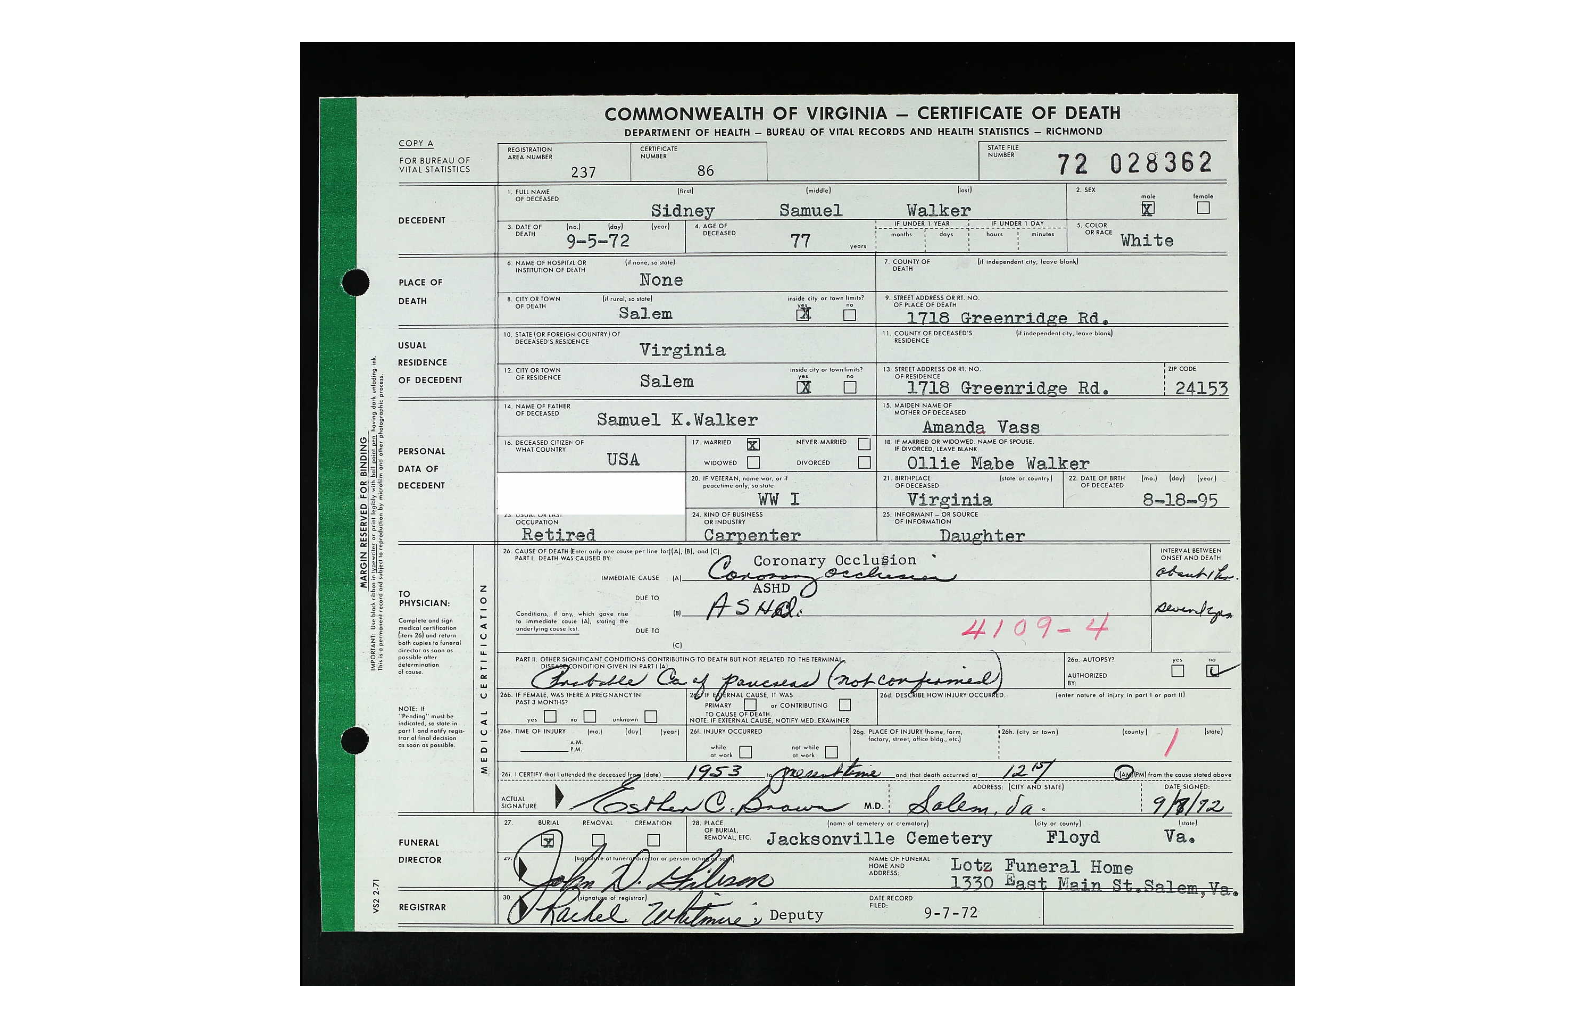 COMMONWEALTH OF VIRGINIA — CERTIFICATE OF DEATH
DEPARTMENT OF HEALTH — BUREAU OF VITAL RECORDS AND HEALTH STATISTICS — RICHMOND
COPY A
FOR BUREAU OF
VITAL STATISTICS
REGISTRATION
AREA NUMBER
237
CERTIFICATE
NUMBER
86
STATE FILE
NUMBER
72 028362
DECEDENT
1. FULL NAME
OF DECEASED
(first) (middle) (last)
Sidney Samuel Walker
2. SEX
male female
X
3. DATE OF
DEATH
(mo.) (day) (year)
9-5-72
4. AGE OF
DECEASED
77
years
IF UNDER 1 YEAR IF UNDER 1 DAY
months days hours minutes
5. COLOR
OR RACE
White
PLACE OF
DEATH
6. NAME OF HOSPITAL OR
INSTITUTION OF DEATH
(if none, so state)
None
7. COUNTY OF
DEATH
(if independent city, leave blank)
8. CITY OR TOWN
OF DEATH
(if rural, so state)
Salem
inside city or town limits?
yes no
X
9. STREET ADDRESS OR RT. NO.
OF PLACE OF DEATH
1718 Greenridge Rd.
USUAL
RESIDENCE
OF DECEDENT
10. STATE (OR FOREIGN COUNTRY) OF
DECEASED'S RESIDENCE
Virginia
11. COUNTY OF DECEASED'S
RESIDENCE
(if independent city, leave blank)
12. CITY OR TOWN
OF RESIDENCE
Salem
inside city or town limits?
yes no
X
13. STREET ADDRESS OR RT. NO.
OF RESIDENCE
1718 Greenridge Rd.
ZIP CODE
24153
PERSONAL
DATA OF
DECEDENT
14. NAME OF FATHER
OF DECEASED
Samuel K.Walker
15. MAIDEN NAME OF
MOTHER OF DECEASED
Amanda Vass
16. DECEASED CITIZEN OF
WHAT COUNTRY
USA
17. MARRIED X NEVER MARRIED
WIDOWED DIVORCED
18. IF MARRIED OR WIDOWED, NAME OF SPOUSE.
IF DIVORCED, LEAVE BLANK
Ollie Mabe Walker
20. IF VETERAN, name war, or if
peacetime only, so state
WW I
21. BIRTHPLACE
OF DECEASED
(state or country)
Virginia
22. DATE OF BIRTH
OF DECEASED
(mo.) (day) (year)
8-18-95
23. USUAL OR LAST
OCCUPATION
Retired
24. KIND OF BUSINESS
OR INDUSTRY
Carpenter
25. INFORMANT — OR SOURCE
OF INFORMATION
Daughter
MARGIN RESERVED FOR BINDING
IMPORTANT: Use black ribbon in typewriter or print legibly with ball point pen having dark unfading ink.
This is a permanent record and subject to reproduction by microfilm and other photographic process.
TO
PHYSICIAN:
Complete and sign
medical certification
(item 26) and return
both copies to funeral
director as soon as
possible after
determination
of cause.
NOTE: If
"Pending" must be
indicated, so state in
part I and notify regis-
trar of final decision
as soon as possible.
MEDICAL CERTIFICATION
26. CAUSE OF DEATH (Enter only one cause per line for (A), (B), and (C).
PART I. DEATH WAS CAUSED BY:
INTERVAL BETWEEN
ONSET AND DEATH
Coronary Occlusion
IMMEDIATE CAUSE (A) Coronary occlusion
about 1 hr.
ASHD
DUE TO
(B) ASHD.
several yrs
Conditions, if any, which gave rise
to immediate cause (A), stating the
underlying cause last.
DUE TO
(C)
4109-4
PART II. OTHER SIGNIFICANT CONDITIONS CONTRIBUTING TO DEATH BUT NOT RELATED TO THE TERMINAL
DISEASE CONDITION GIVEN IN PART I (A)
Probable Ca of pancreas (not confirmed)
26a. AUTOPSY?
yes no
AUTHORIZED
BY:
26b. IF FEMALE, WAS THERE A PREGNANCY IN
PAST 3 MONTHS?
yes no unknown
26c. IF EXTERNAL CAUSE, IT WAS
PRIMARY or CONTRIBUTING
TO CAUSE OF DEATH
NOTE: IF EXTERNAL CAUSE, NOTIFY MED. EXAMINER
26d. DESCRIBE HOW INJURY OCCURRED.
(enter nature of injury in part I or part II)
26e. TIME OF INJURY
(mo.) (day) (year)
A.M.
P.M.
26f. INJURY OCCURRED
while
at work
not while
at work
26g. PLACE OF INJURY (home, farm,
factory, street, office bldg., etc.)
26h. (city or town) (county) (state)
1
26i. I CERTIFY that I attended the deceased from (date) 1953 to present time and that death occurred at 12 15 (AM)(PM) from the cause stated above
ACTUAL
SIGNATURE
Esther C. Brown M.D.
ADDRESS: (CITY AND STATE)
Salem, Va.
DATE SIGNED:
9/8/72
FUNERAL
DIRECTOR
27. BURIAL REMOVAL CREMATION
X
28. PLACE
OF BURIAL,
REMOVAL, ETC.
(name of cemetery or crematory) (city or county) (state)
Jacksonville Cemetery Floyd Va.
29. (signature of funeral director or person acting as such)
NAME OF FUNERAL
HOME AND
ADDRESS:
Lotz Funeral Home
1330 East Main St.Salem,Va.
REGISTRAR
30. (signature of registrar)
Rachel Whitmire, Deputy
DATE RECORD
FILED:
9-7-72
VS2 2-71